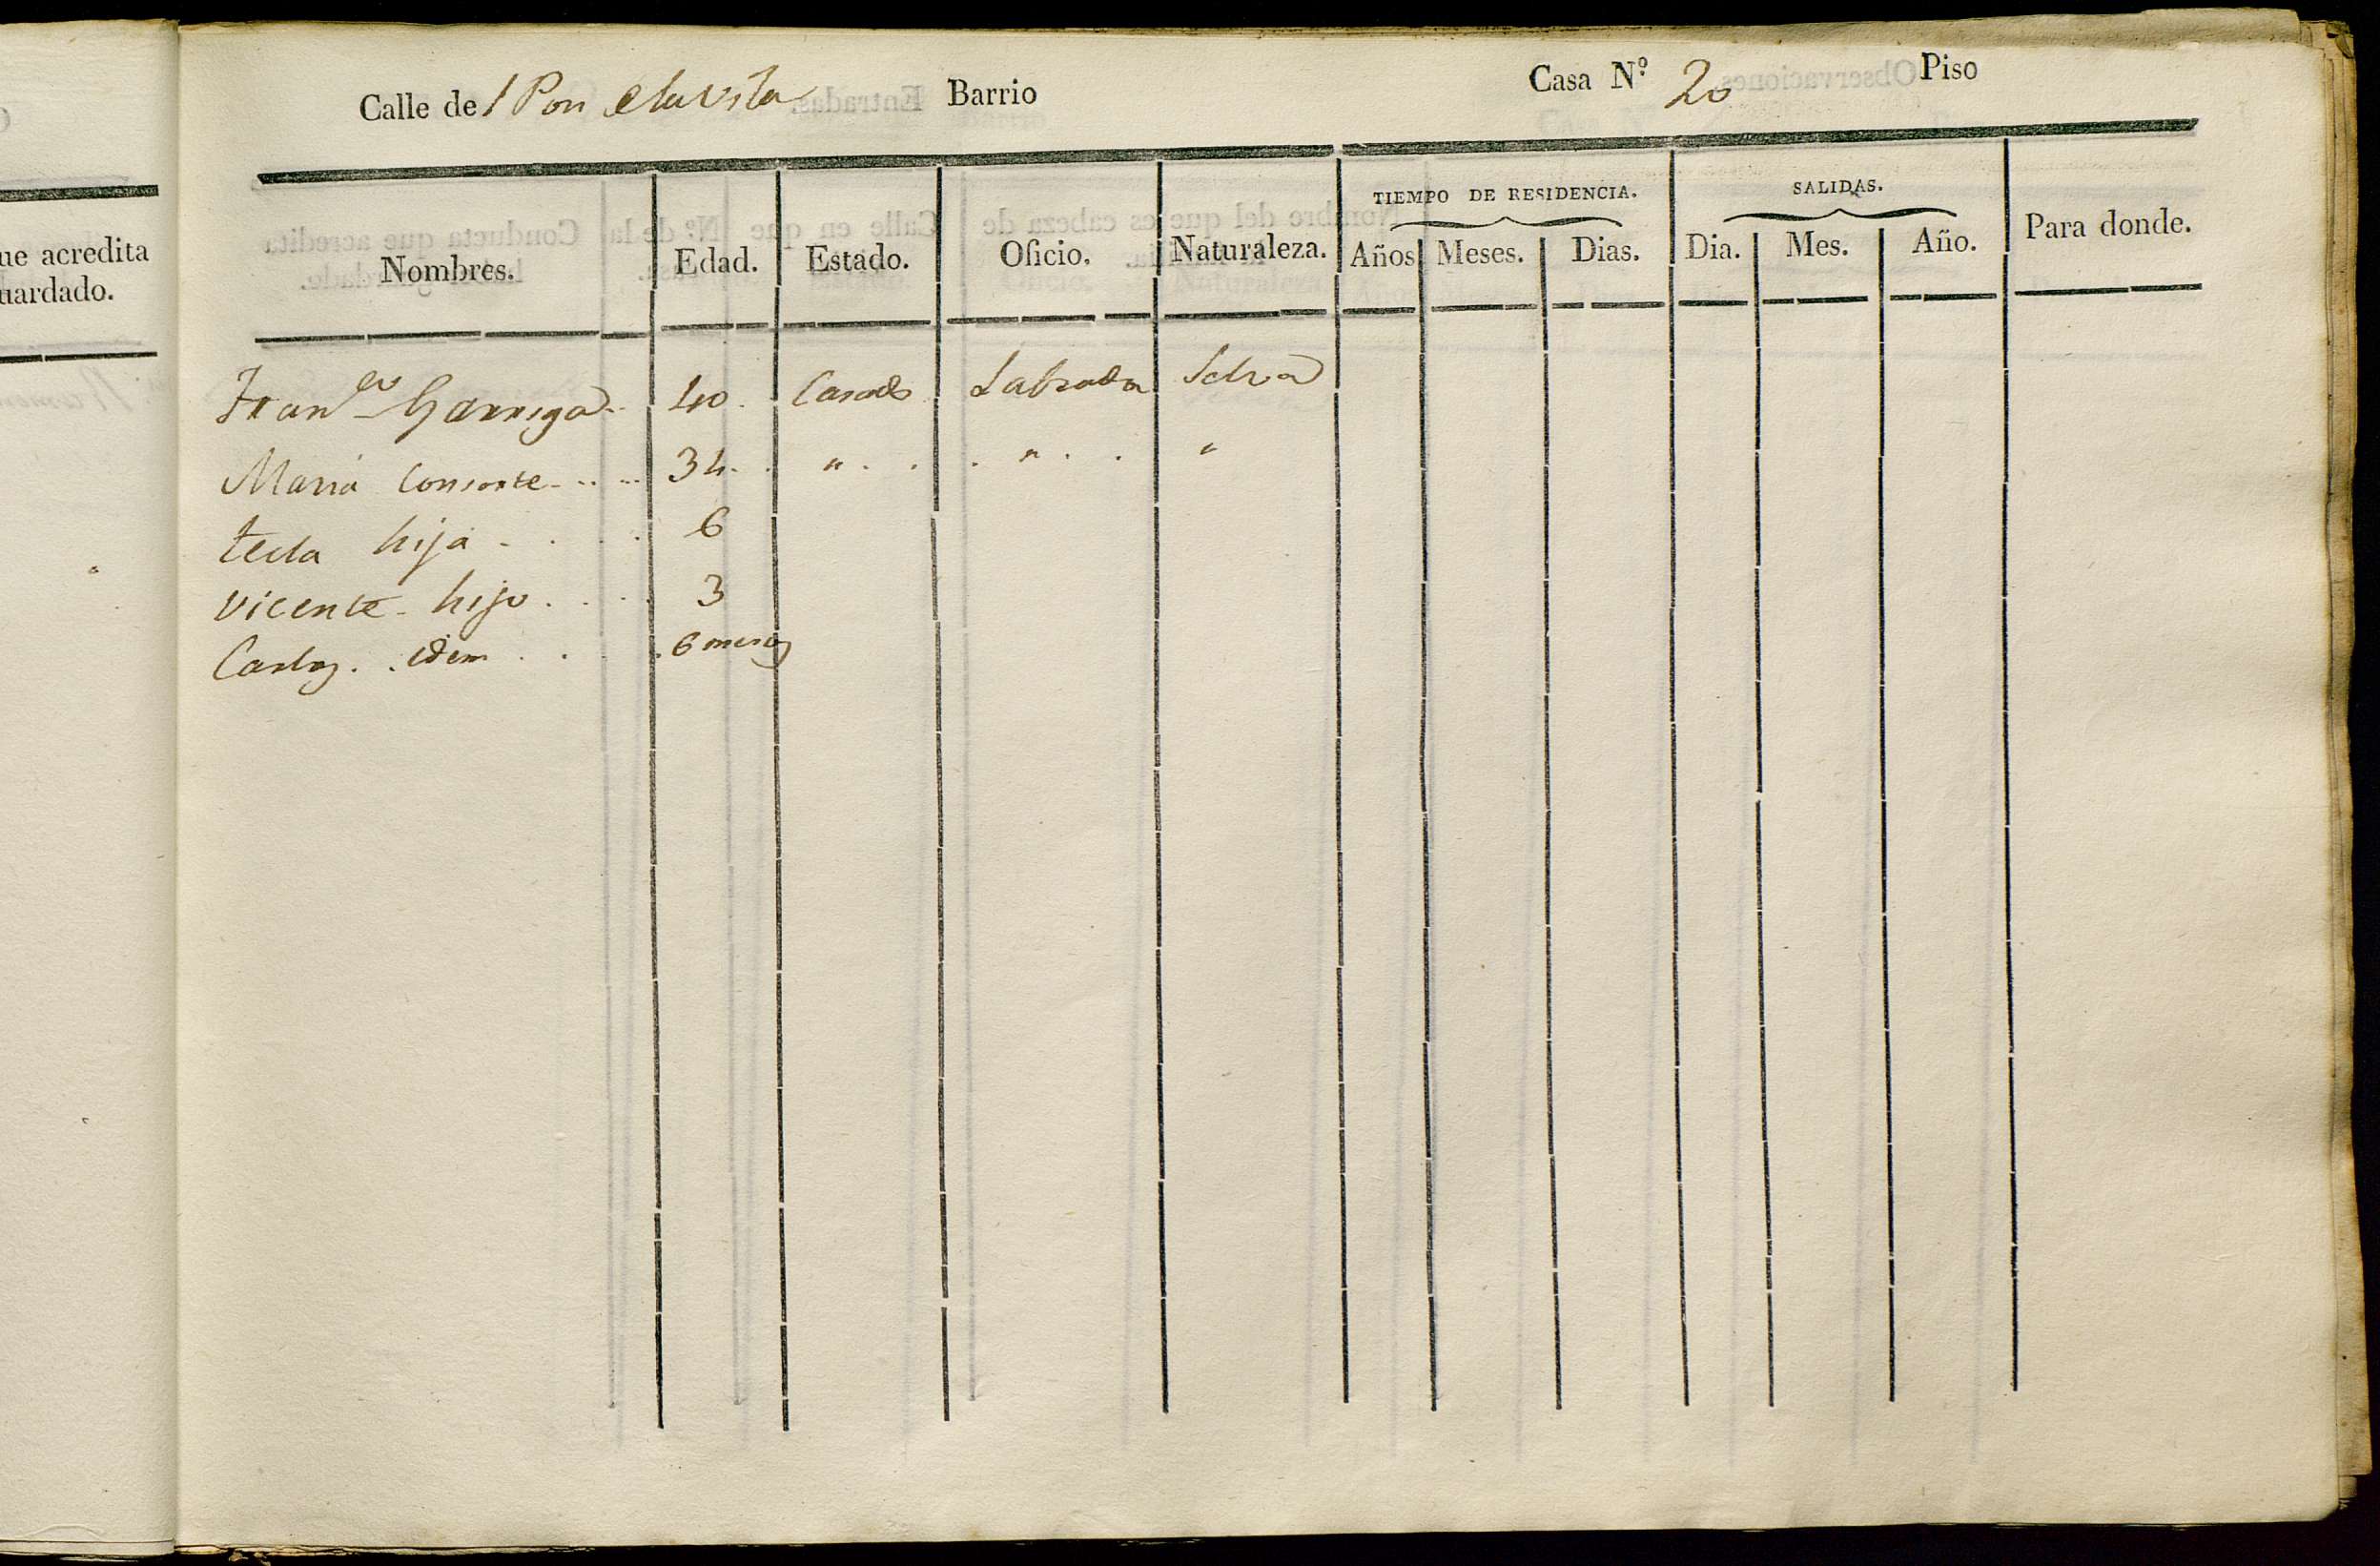 ue acredita
uardado.
Calle de l Pou de la Vila Barrio Casa Nº 20 Piso
TIEMPO DE RESIDENCIA. SALIDAS.
Nombres. Edad. Estado. Oficio. Naturaleza. Años Meses. Dias. Dia. Mes. Año. Para donde.
Franco Garriga 40. Casado Labrador Selva
Maria Consorte 34. " " "
tecla hija 6
Vicente hijo 3
Carlos idem 6 meses